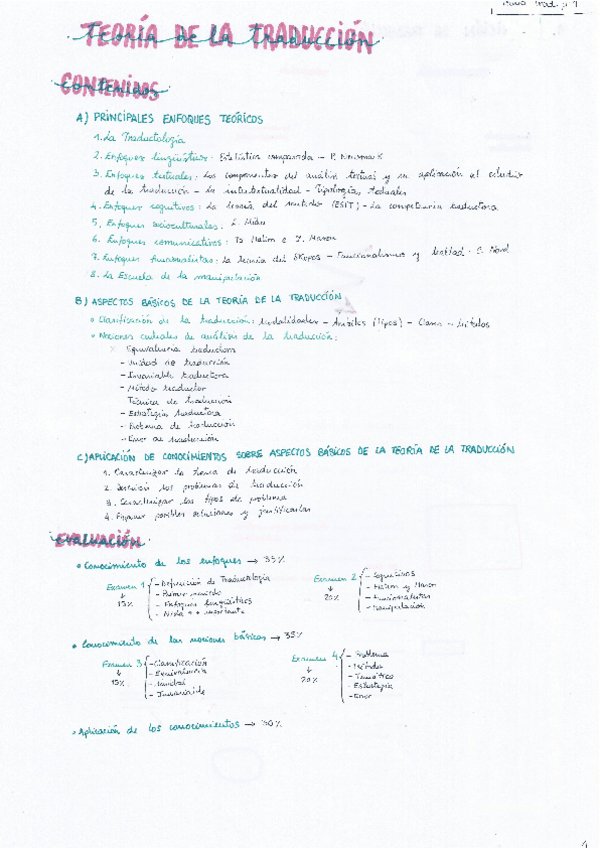 TEORÍA DE LA TRADUCCIÓN
CONTENIDOS
A) PRINCIPALES ENFOQUES TEÓRICOS
1. La Traductología
2. Enfoques lingüísticos: Estilística comparada – P. Newmark
3. Enfoques textuales: Los componentes del análisis textual y su aplicación al estudio
de la traducción – La intertextualidad – Tipologías textuales
4. Enfoques cognitivos: La teoría del sentido (ESIT) – La competencia traductora
5. Enfoques socioculturales: E. Nida
6. Enfoques comunicativos: B. Hatim e I. Mason
7. Enfoques funcionalistas: la teoría del Skopos – Funcionalismo y lealtad · C. Nord
8. La Escuela de la manipulación
B) ASPECTOS BÁSICOS DE LA TEORÍA DE LA TRADUCCIÓN
• Clasificación de la traducción: Modalidades – (tipos) – Clases – Métodos
• Nociones centrales de análisis de la traducción:
Equivalencia traductora
– Unidad de traducción
– Invariable traductora
– Método traductor
Técnica de traducción
– Estrategia traductora
– Problema de traducción
– Error de traducción
C) APLICACIÓN DE CONOCIMIENTOS SOBRE ASPECTOS BÁSICOS DE LA TEORÍA DE LA TRADUCCIÓN
1. Caracterizar la tarea de traducción
2. los problemas de traducción
3. Caracterizar los tipos de problema
4. Proponer posibles soluciones y justificarlas
EVALUACIÓN
• Conocimiento de los enfoques → 35%
Examen 1 ↓ 15%
– Definición de Traductología
– Primer
– Enfoques lingüísticos
– Nida ++ importante
Examen 2 ↓ 20%
– Cognitivos
– Hatim y Mason
– Funcionalistas
– Manipulación
• Conocimiento de las nociones básicas → 35%
Examen 3 ↓ 15%
– Clasificación
– Equivalencia
– Unidad
– Invariable
Examen 4 ↓ 20%
– Problema
– Método
– Técnica
– Estrategia
– Error
• Aplicación de los conocimientos → 30%
1